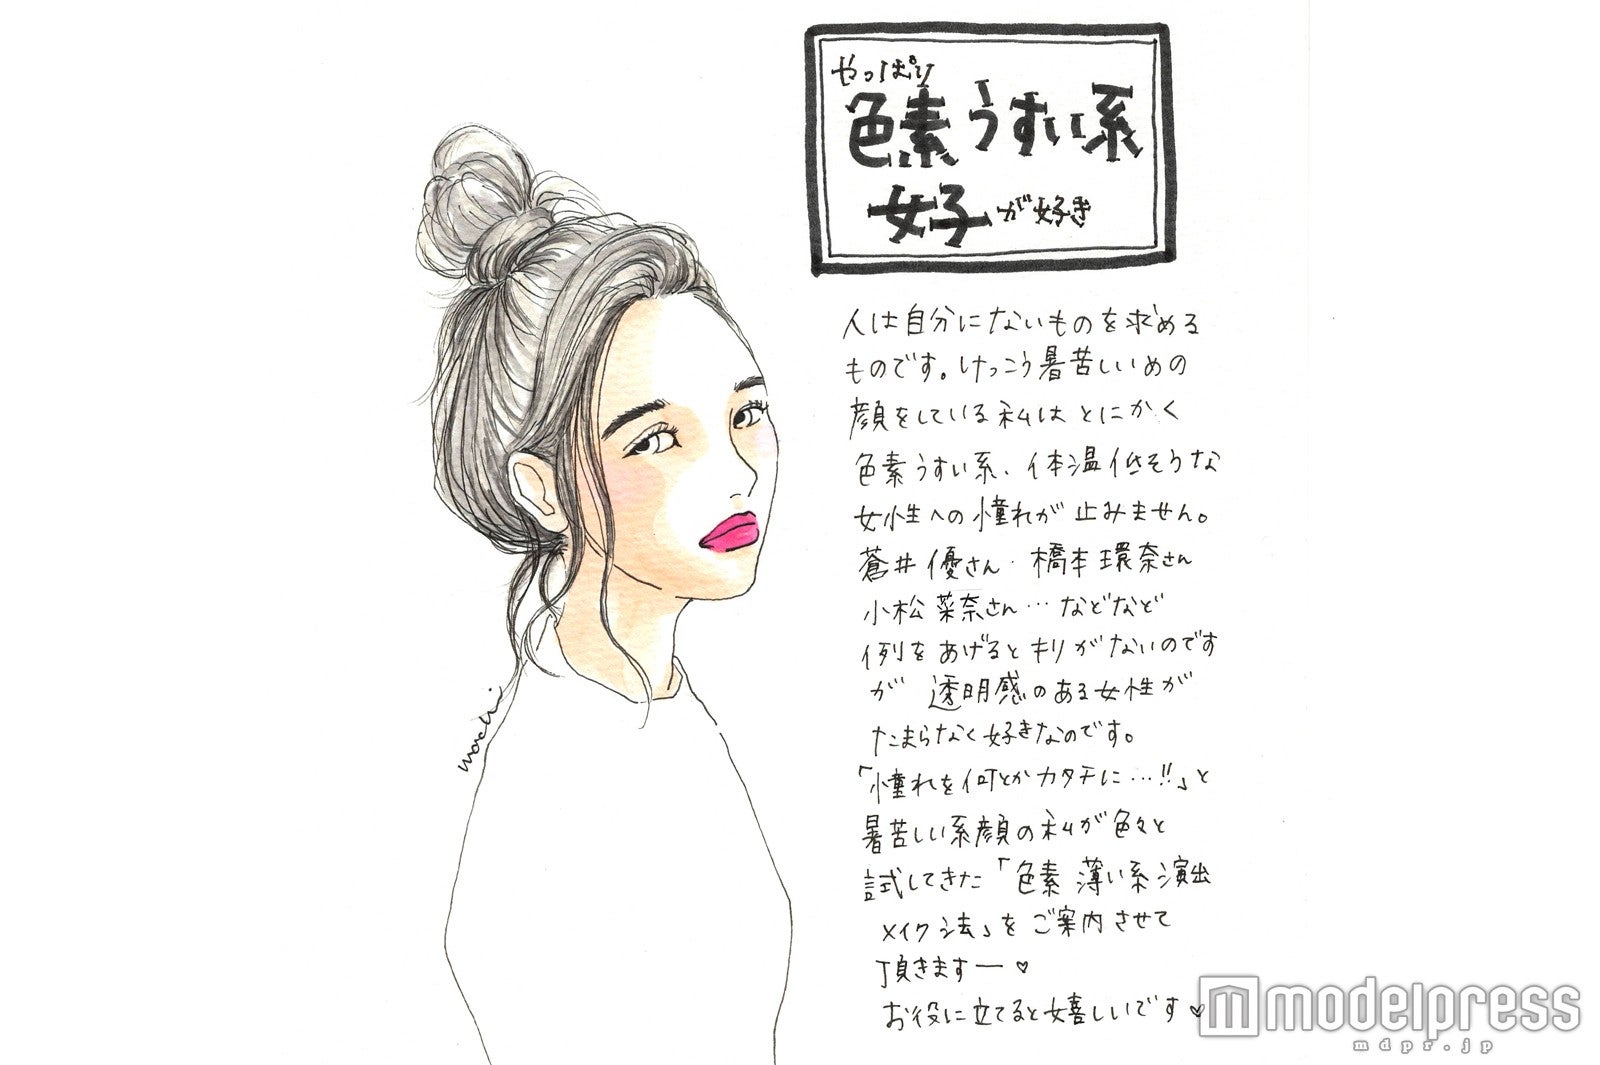 やっぱり
色素うすい系
女子が好き
人は自分にないものを求める
ものです。けっこう暑苦しいめの
顔をしている私はとにかく
色素うすい系、体温低そうな
女性への憧れが止みません。
蒼井優さん・橋本環奈さん
小松菜奈さん…などなど
例をあげるとキリがないのです
が 透明感のある女性が
たまらなく好きなのです。
「憧れを何とかカタチに…!!」と
暑苦しい系顔の私が色々と
試してきた「色素薄い系演出
メイク法」をご案内させて
頂きますー♡
お役に立てると嬉しいです♡
modelpress
mdpr.jp